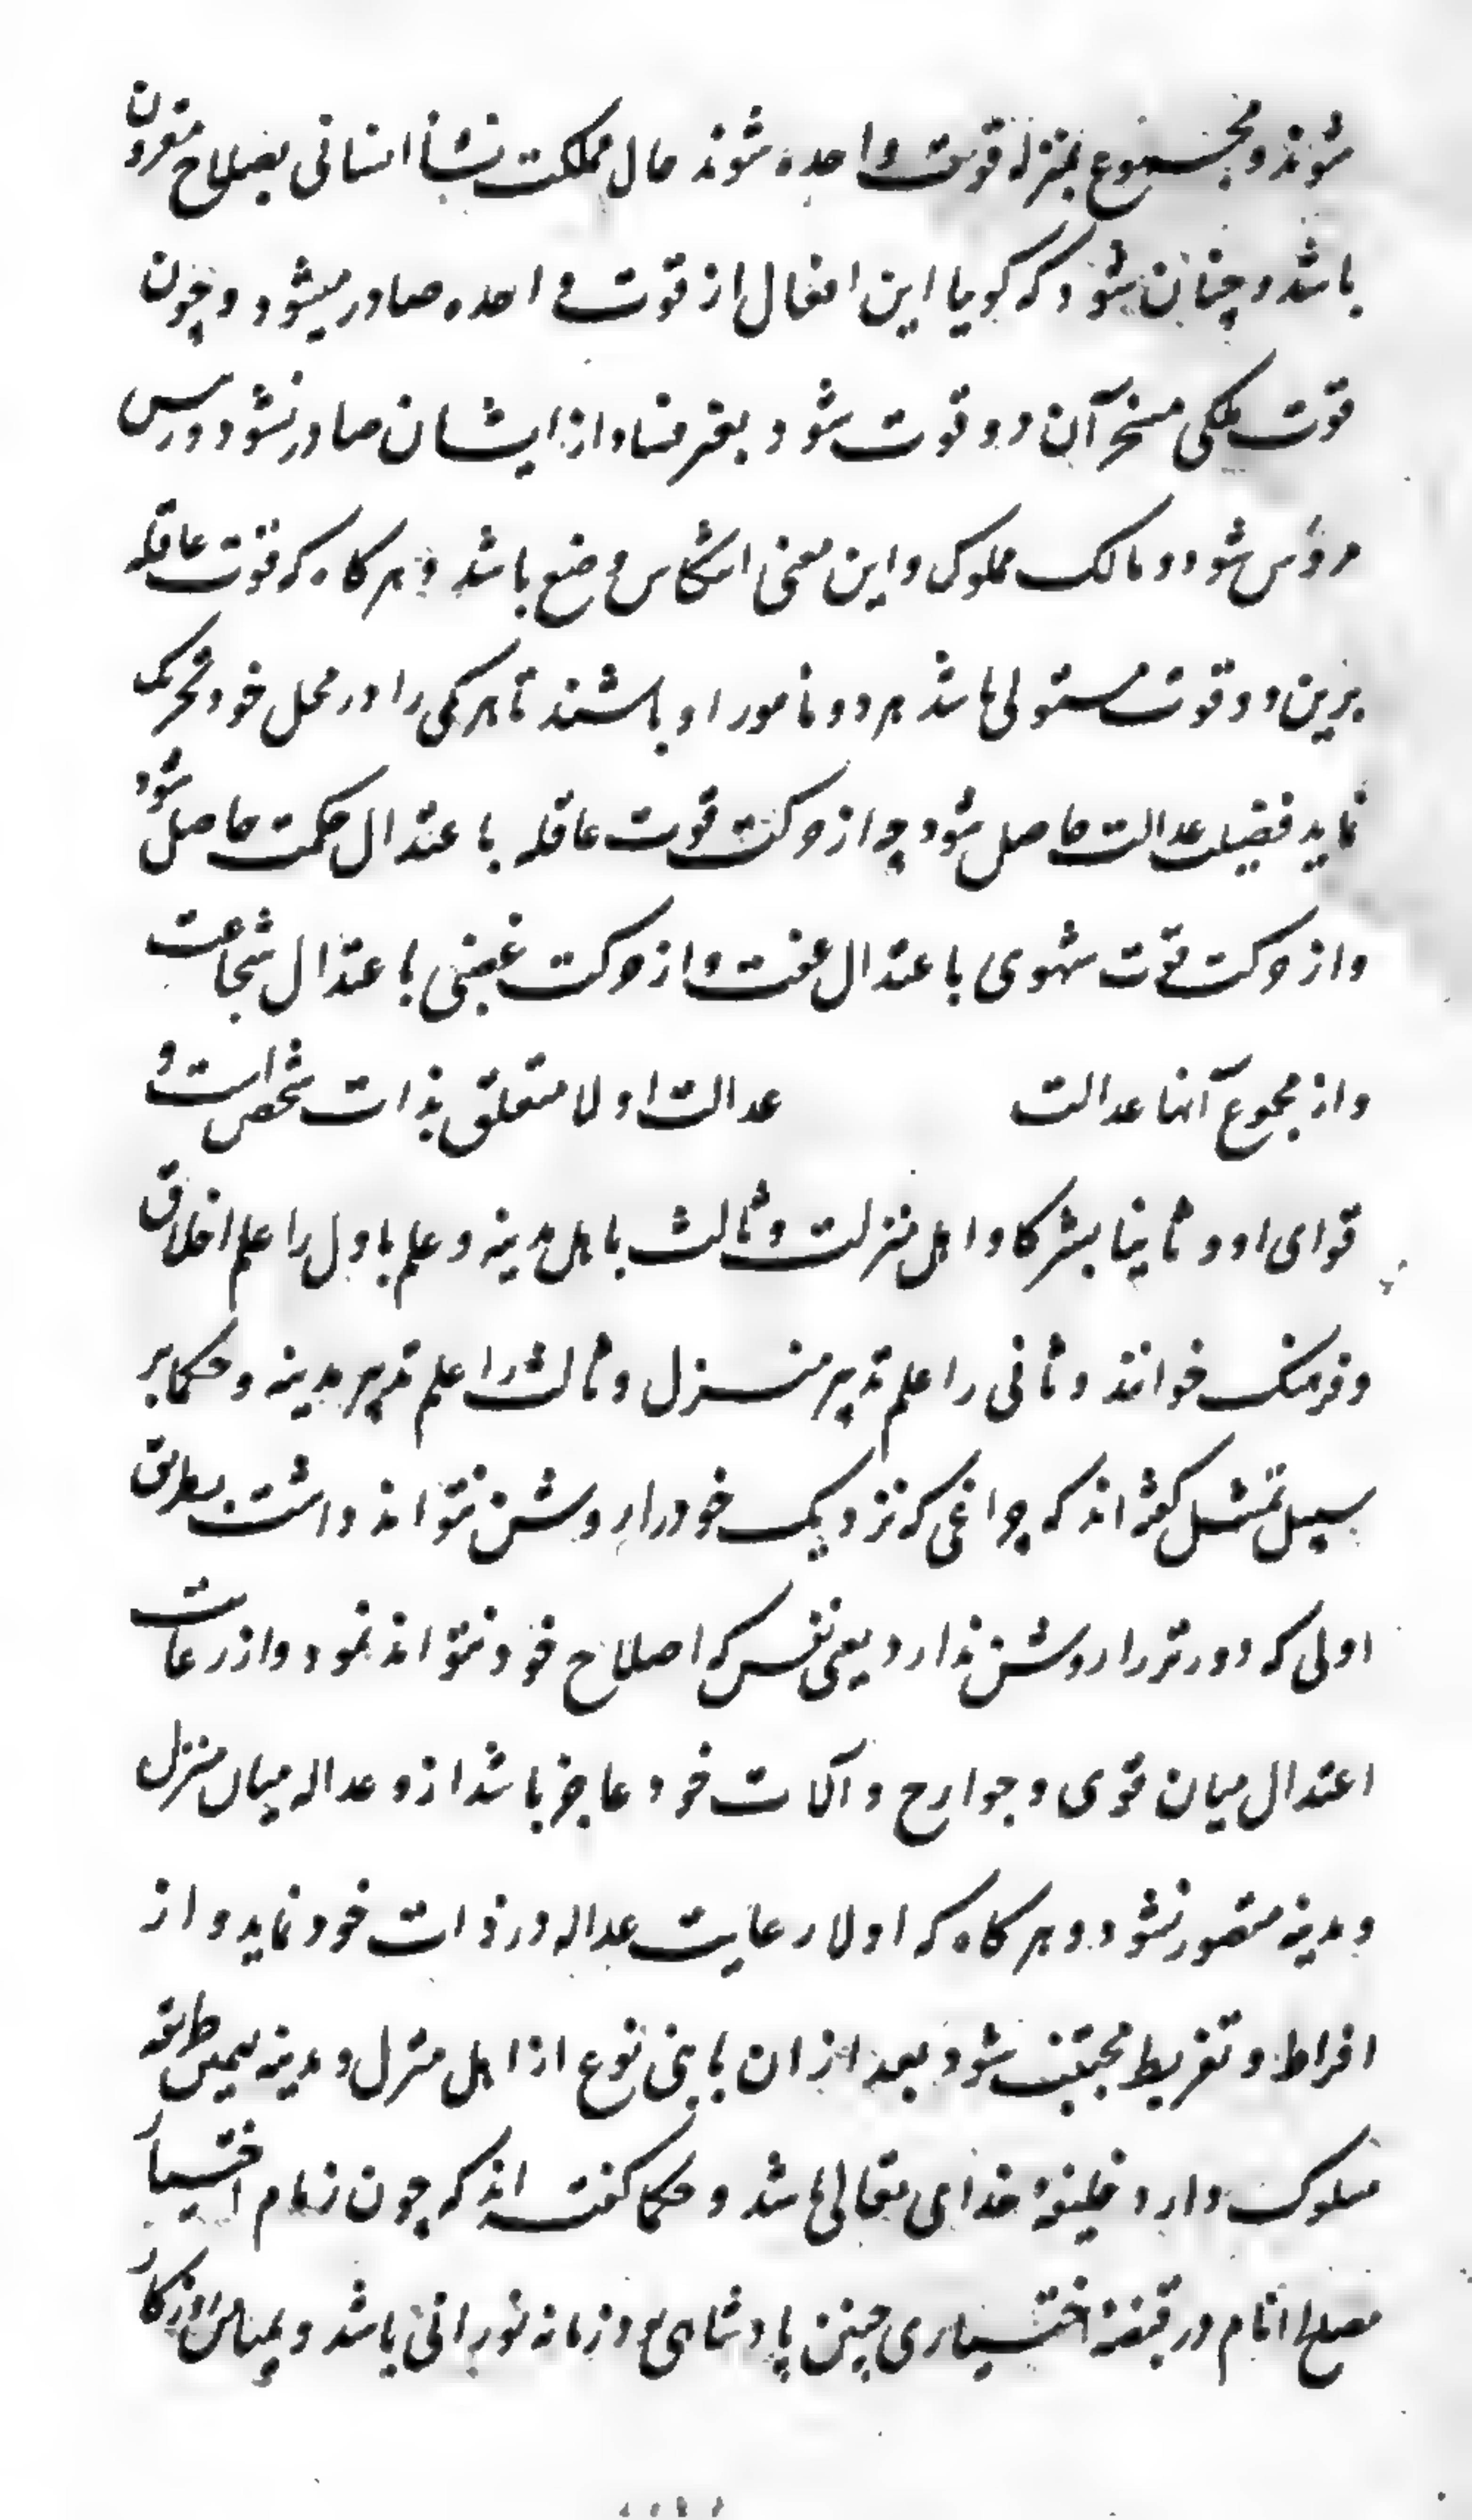 شوند و مجموع بمنزله قوت واحده شوند حال مملکت نشأ انسانی بصلاح مقرون
باشد و چنان شود که کویا این افعال از قوت واحده صادر میشود و چون
قوت ملکی مسخر آن دو قوت شود بغیر فساد از ایشان صادر نشود و رئیس
مرؤس شود و مالک مملوک و این معنی انتکاس وضع باشد و هرکاه که قوت عاقله
برین دو قوت مستولی باشد هر دو مأمور او باشند تا هر یکی را در محل خود تحریک
نماید فضیلت عدالت حاصل شود چه از حرکت قوت عاقله باعتدال حکمت حاصل شود
و از حرکت قوت شهوی باعتدال عفت و از حرکت غضبی باعتدال شجاعت
و از مجموع آنها عدالت عدالت اولا متعلق بذات شخص است و
قوای او و ثانیا بشرکا و اهل منزلت و ثالث باهل مدینه و علم باول را علم اخلاق
و فرهنک خوانند و ثانی را علم تدبیر منزل و ثالث را علم تدبیر مدینه و حکما بر
سبیل تمثیل کفته اند که چراغی که نزدیک خود را روشن نتواند داشت بطریق
اولی که دورتر را روشن ندارد یعنی نفس که اصلاح خود نتواند نمود و از رعایت
اعتدال میان قوی و جوارح و آلات خود عاجز باشد ازو عداله میان منزل
و مدینه متصور نشود و هرکاه که اولا رعایت عداله در ذات خود نماید و از
افراط و تفریط مجتنب شود بعد از ان با بنی نوع از اهل منزل و مدینه بهمین طریقه
سلوک دارد خلیفهٔ خدای تعالی باشد و حکما کفته اند که چون زمام اختیار
مصلح انام در قبضهٔ اختیاری چنین پادشاهی بود زمانه نورانی باشد و بمیامن روزکار